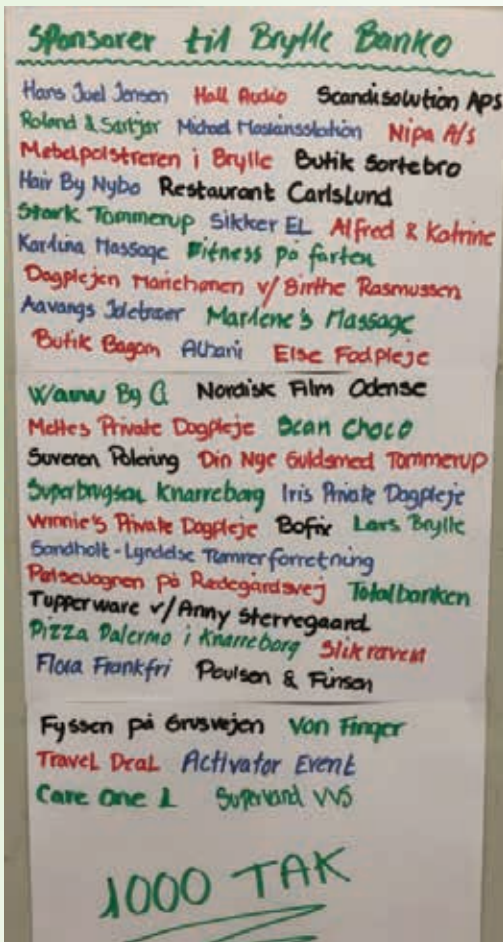 Sponsorer til Brylle Banko
Hans Juel Jensen Hall Audio Scandisolution APS
Roland & Sartjar Michael Nipa A/S
Møbelpolstreren i Brylle Butik Sortebro
Hair By Nybo Restaurant Carlslund
Stark Tommerup Sikker EL Alfred & Katrine
Karlina Massage Fitness på farten
Dagplejen Mariehønen v/ Birthe Rasmussen
Aavangs Juletræer Marlene's Massage
Butik Bagom Albani Else Fodpleje
Wauw By C. Nordisk Film Odense
Mettes Private Dagpleje Scan Choco
Suveren Polering Din Nye Guldsmed Tommerup
Superbrugsen Knarreborg Iris Private Dagpleje
Winnie's Private Dagpleje Bofix Lars Brylle
Sandholt-Lyndelse Tømrerforretning
Pølsevognen på Rødegårdsvej Totalbanken
Tupperware v/Anny Sterregaard
Pizza Palermo i Knarreborg Slikraven
Flora Frankfri Poulsen &
Fyssen på Grusvejen Von Finger
Travel Deal Activator Event
Care One L Supervand VVS
1000 TAK